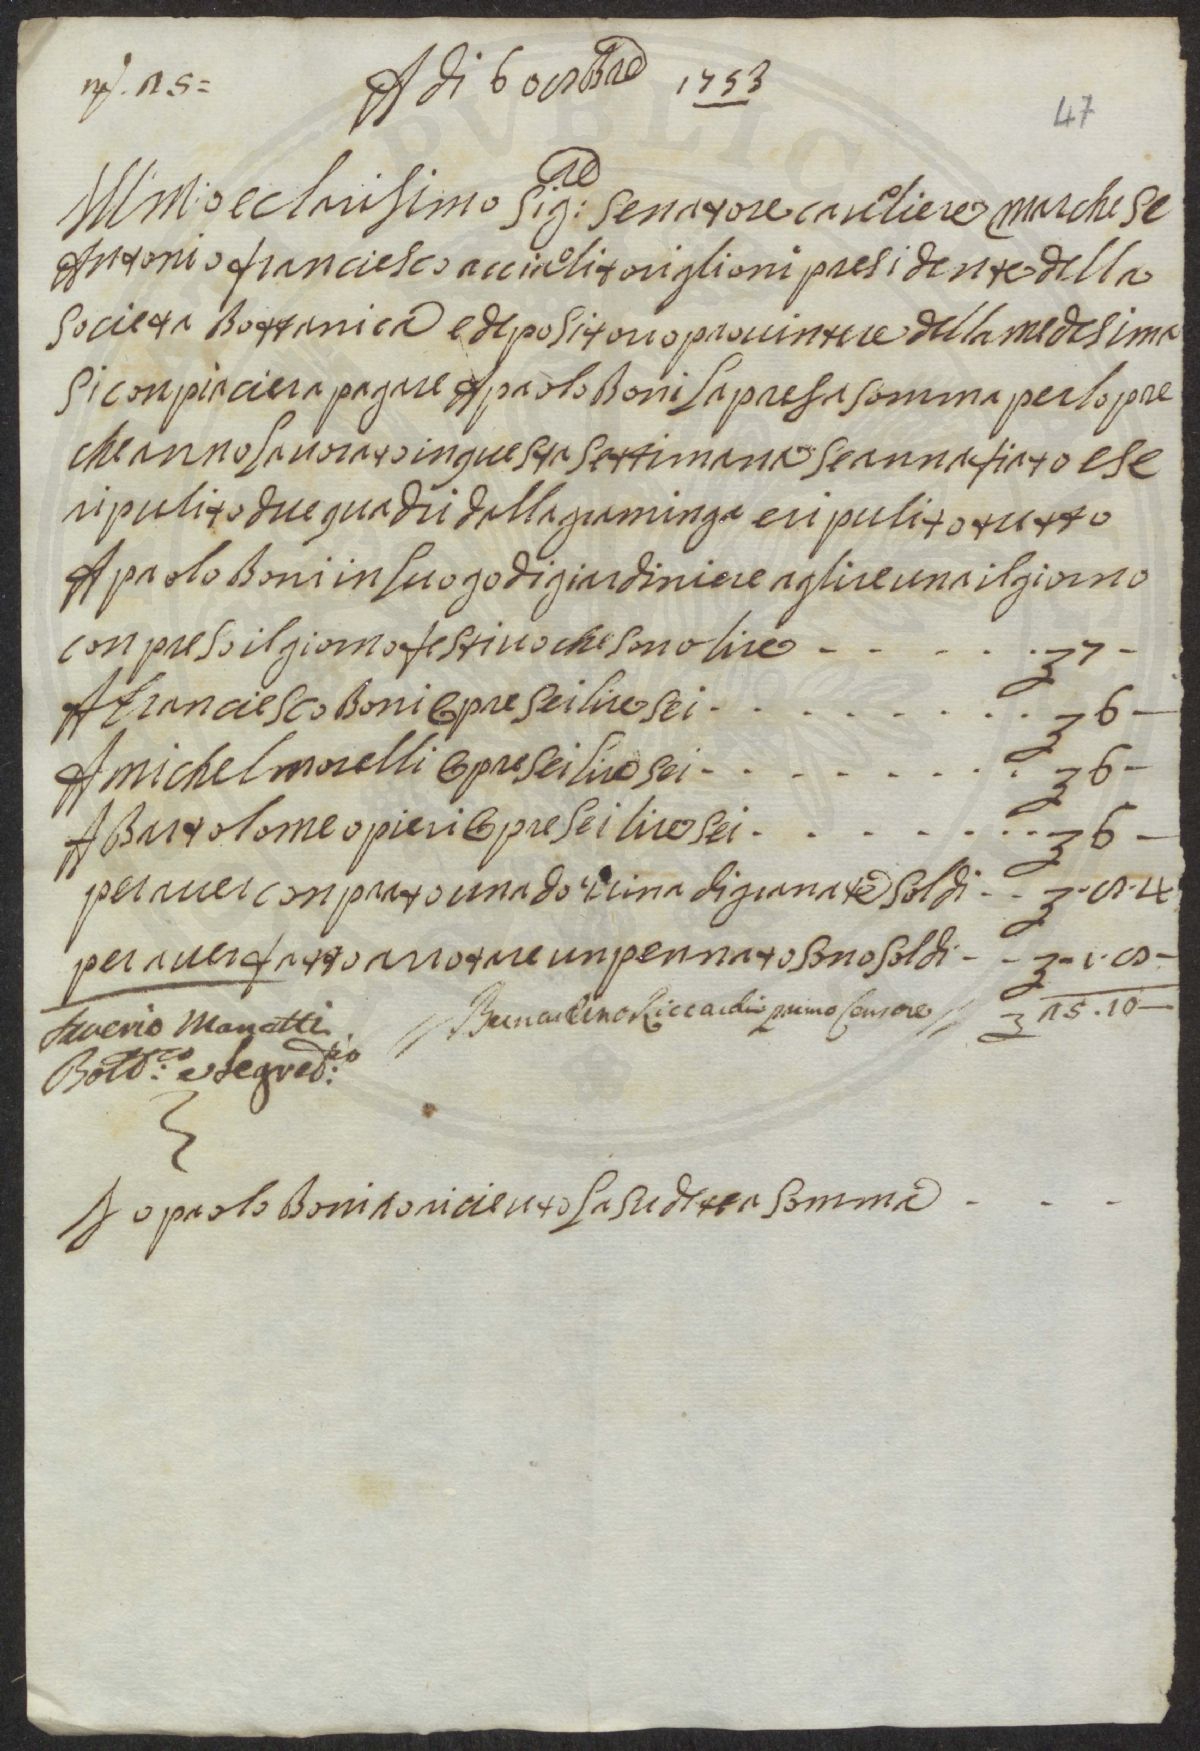 nº. 25=
A di 6 octobre 1753
47
Ill mo e clarisimo Sig:re senatore caveliere marchese
Antonio franciesco acciaeli toriglioni presidente della
Societa Bottanica e depositorio provintere della medesima
Si conpiaciera pagare A paolo Boni la presa somma per lopre
che anno lavorato in questa settimana se annafiato e se
ripulito due quadri dalla graminga e ripulito tutto
A paolo Boni in luogo di giardiniere a glire una il giorno
conpreso il giorno festivo che sono lire - - - - - 7 -
A franciesco Boni opre sei lire sei - - - - - - 6 -
A michel morelli opre sei lire sei - - - - - - 6 -
A Bartolomeo pieri opre sei lire sei - - - - - - 6 -
per aver conprato una dozzina di granate soldi - - - 9.4
per aver fatto arrotare un pennato sono soldi - - -
Saverio Manetti
Bott:co e Segred:rio
// Bernardino Riccardi primo Censore // 25.10 -
Io paolo Boni o riceuto la sudetta somma - - -